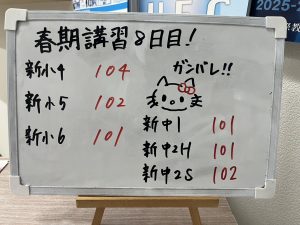 春期講習8日目!
新小4 104
新小5 102
新小6 101
ガンバレ!!
新中1 101
新中2H 101
新中2S 102
2025-2